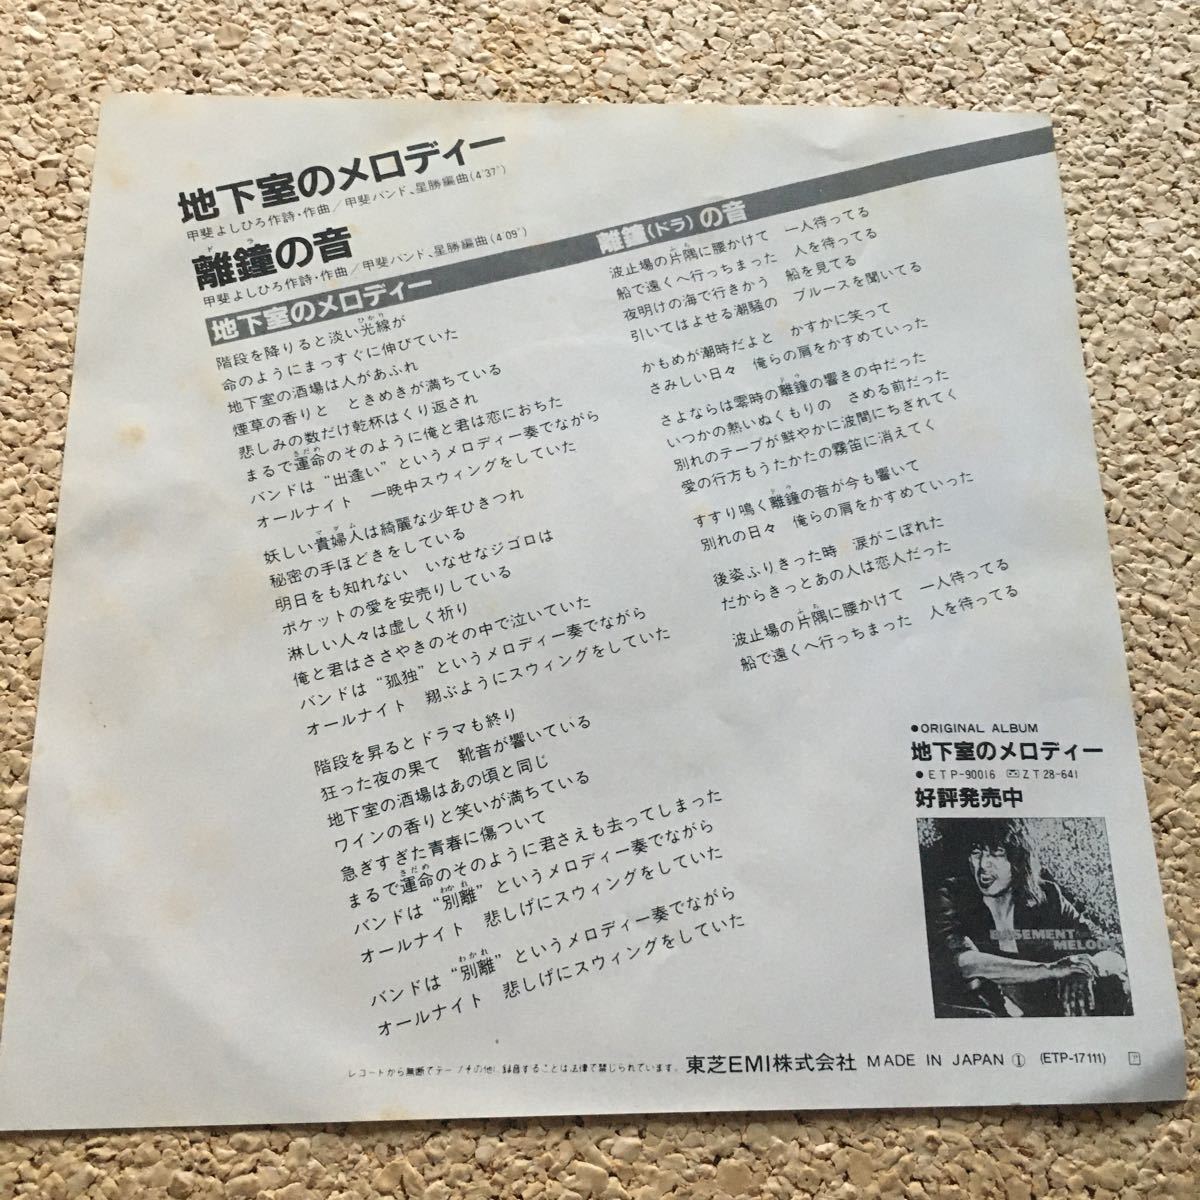 地下室のメロディー
甲斐よしひろ作詩・作曲／甲斐バンド、星勝編曲(4'37")
ドラ
離鐘の音
甲斐よしひろ作詩・作曲／甲斐バンド、星勝編曲(4'09")
地下室のメロディー
ひかり
階段を降りると淡い光線が
命のようにまっすぐに伸びていた
地下室の酒場は人があふれ
煙草の香りと　ときめきが満ちている
悲しみの数だけ乾杯はくり返され
さだめ
まるで運命のそのように俺と君は恋におちた
バンドは“出逢い”というメロディー奏でながら
オールナイト　一晩中スウィングをしていた
マダム
妖しい貴婦人は綺麗な少年ひきつれ
秘密の手ほどきをしている
明日をも知れない　いなせなジゴロは
ポケットの愛を安売りしている
淋しい人々は虚しく祈り
俺と君はささやきのその中で泣いていた
バンドは“孤独”というメロディー奏でながら
オールナイト　翔ぶようにスウィングをしていた
階段を昇るとドラマも終り
狂った夜の果て　靴音が響いている
地下室の酒場はあの頃と同じ
ワインの香りと笑いが満ちている
急ぎすぎた青春に傷ついて
さだめ
まるで運命のそのように君さえも去ってしまった
わかれ
バンドは“別離”というメロディー奏でながら
オールナイト　悲しげにスウィングをしていた
わかれ
バンドは“別離”というメロディー奏でながら
オールナイト　悲しげにスウィングをしていた
離鐘(ドラ)の音
波止場の片隅に腰かけて　一人待ってる
船で遠くへ行っちまった　人を待ってる
夜明けの海で行きかう　船を見てる
引いてはよせる潮騒の　ブルースを聞いてる
かもめが潮時だよと　かすかに笑って
さみしい日々　俺らの肩をかすめていった
さよならは零時の離鐘の響きの中だった
いつかの熱いぬくもりの　さめる前だった
別れのテープが鮮やかに波間にちぎれてく
愛の行方もうたかたの霧笛に消えてく
すすり鳴く離鐘の音が今も響いて
別れの日々　俺らの肩をかすめていった
後姿ふりきった時　涙がこぼれた
だからきっとあの人は恋人だった
波止場の片隅に腰かけて　一人待ってる
船で遠くへ行っちまった　人を待ってる
●ORIGINAL ALBUM
地下室のメロディー
●ETP-90016 ZT28-641
好評発売中
BASEMENT
MELODY
レコードから無断でテープその他に録音することは法律で禁じられています。
東芝EMI株式会社 MADE IN JAPAN Ⓘ (ETP-17111)